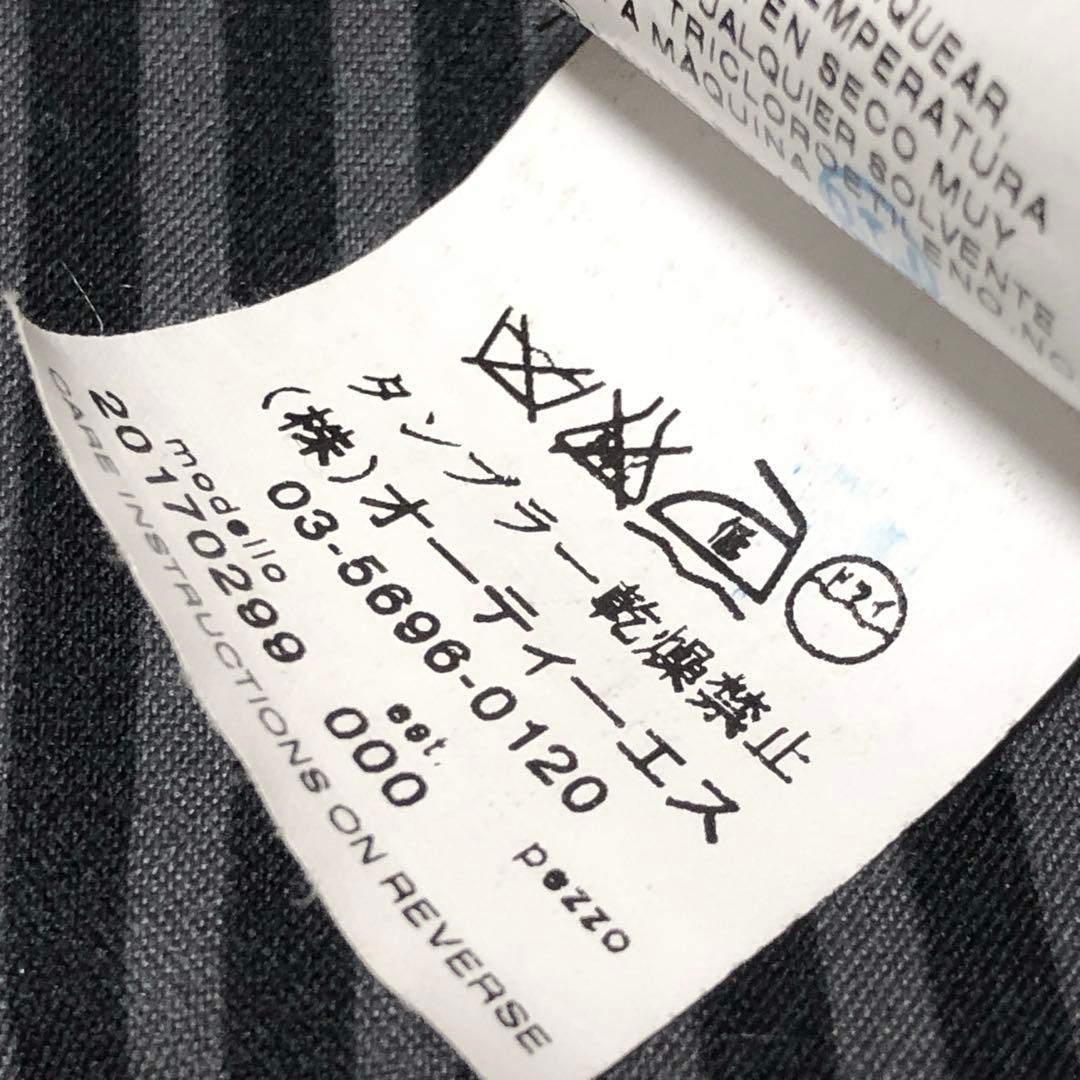 QUEAR,
TEMPERATURA
EN SECO MUY
CUALQUIER SOLVENTE
TRICLOROETILENO. NO
A MAQUINA
低
ドライ
タンブラー乾燥禁止
(株)オーティーエス
03-5696-0120
modello est. pezzo
20170299 000
CARE INSTRUCTIONS ON REVERSE